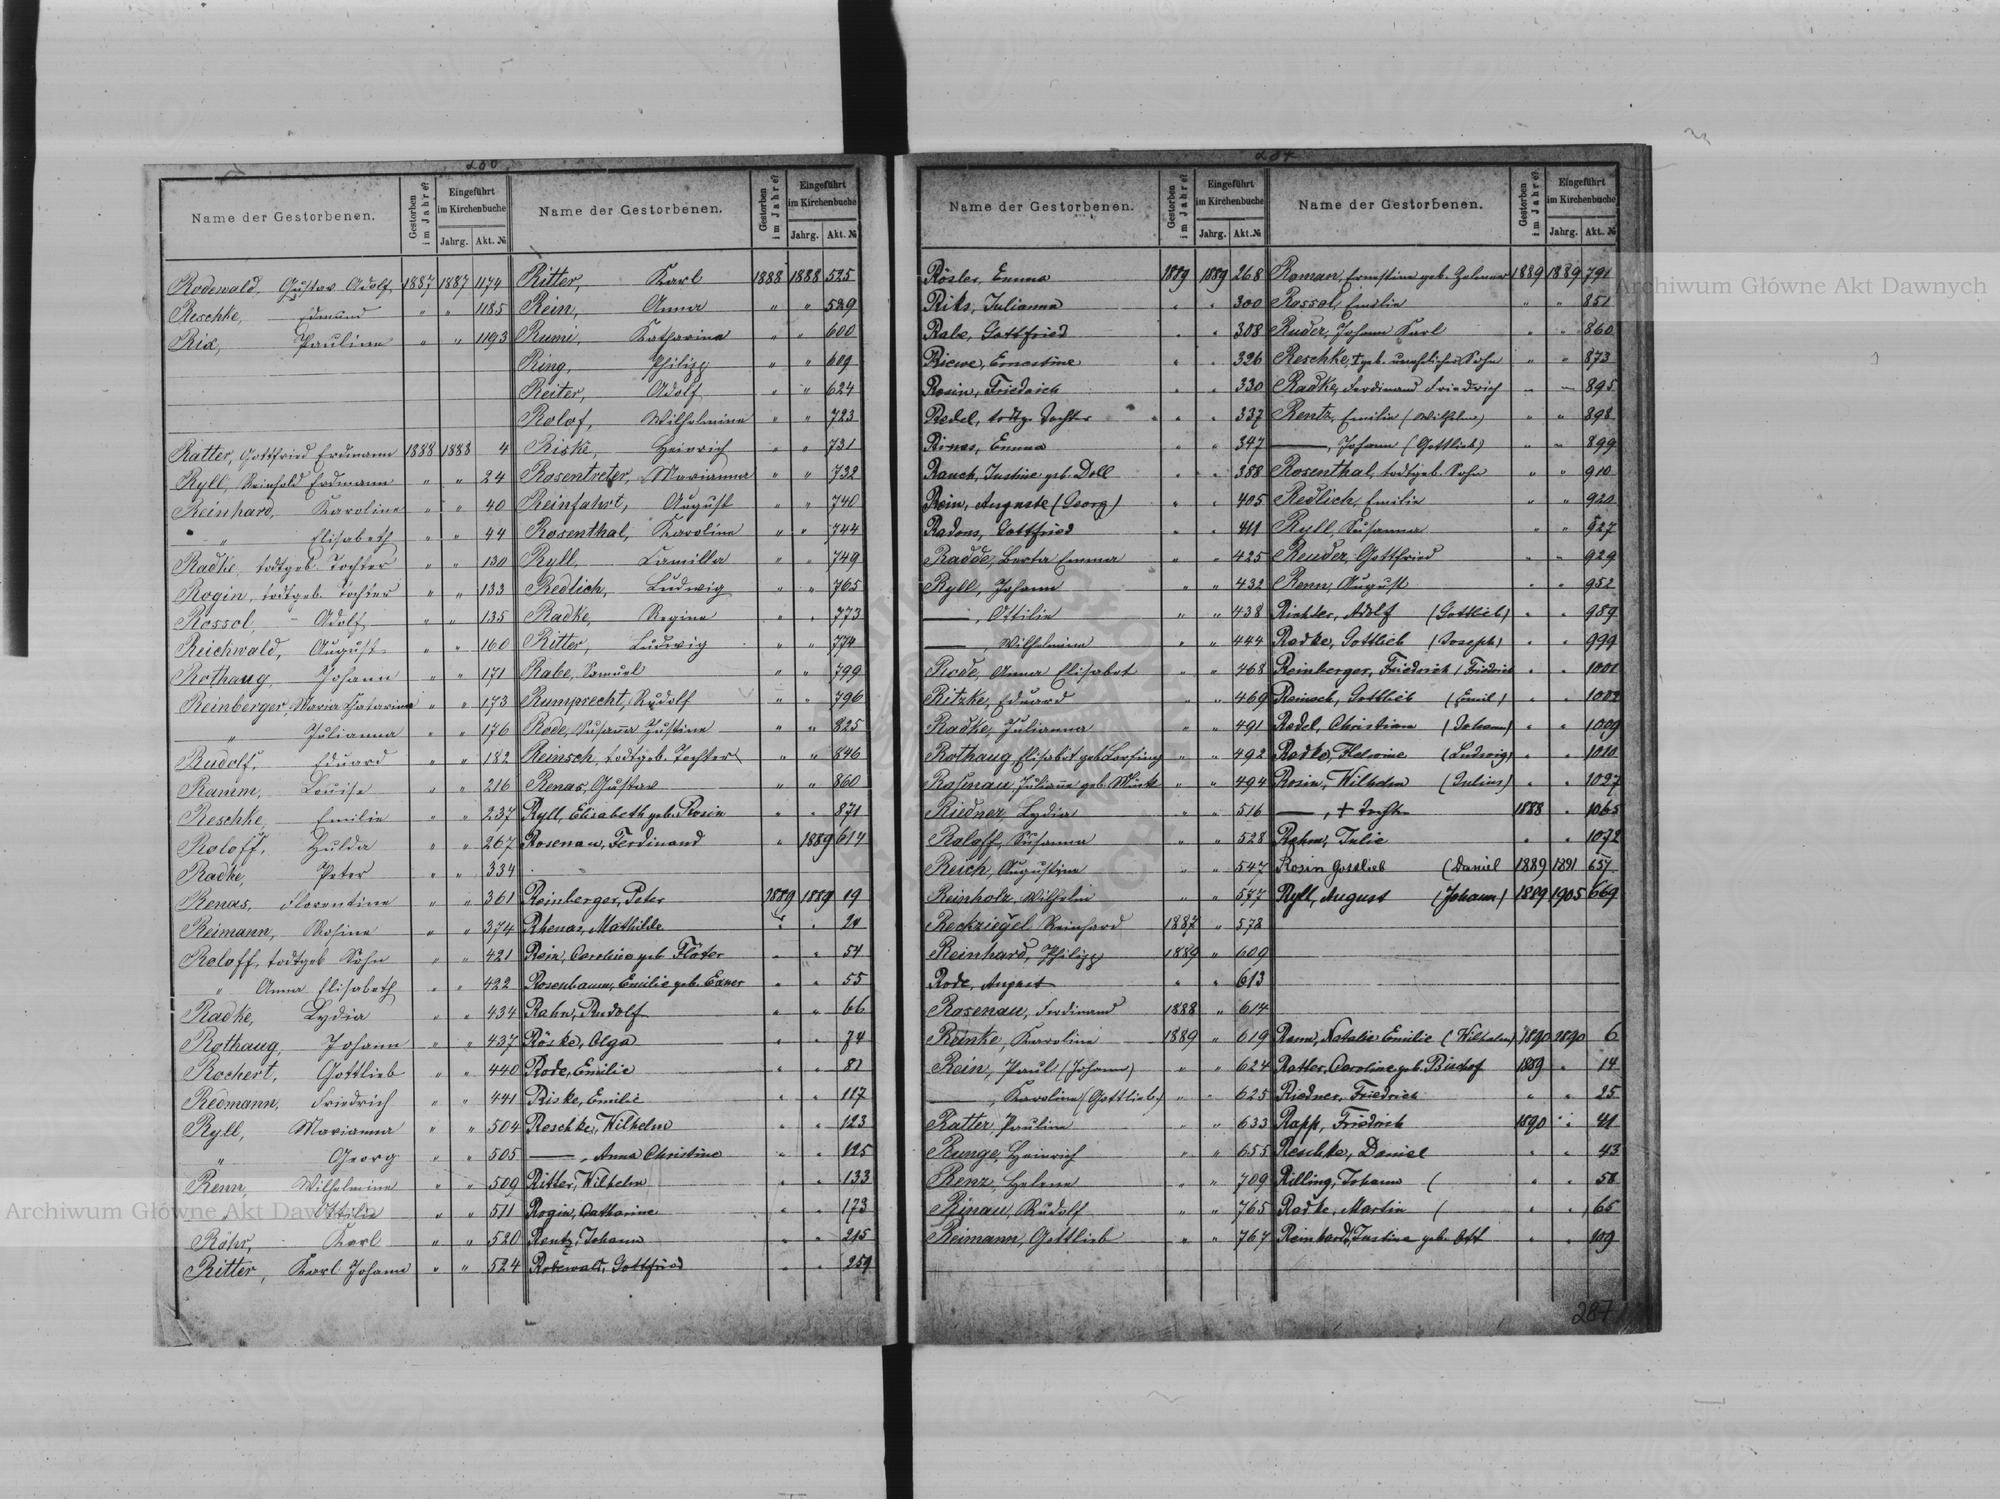 200
Name der Gestorbenen. Gestorben im Jahre? Eingeführt im Kirchenbuche Jahrg. Akt. №
Rodewald, Gustav Adolf 1887 1887 1174
Reschke, Edmund " " 1185
Rix, Pauline " " 1193
Ratter, Gottfried Erdmann 1888 1888 4
Ryll, Reinhold Erdmann " " 24
Reinhard, Karoline " " 40
" Elisabeth " " 44
Radke, todtgeb. Tochter " " 130
Rogin, todtgeb. Tochter " " 133
Rossol, Adolf " " 135
Reichwald, August " " 160
Rothaug, Johann " " 171
Reinberger, Maria Katarina " " 173
" Julianna " " 176
Rudolf, Eduard " " 182
Ramm, Louise " " 216
Reschke, Emilie " " 237
Roloff, Hulda " " 267
Radke, Peter " " 334
Renas, Florentine " " 361
Reimann, Rosine " " 374
Roloff, todtgeb Sohn " " 421
" Anna Elisabeth " " 422
Radke, Lydia " " 434
Rothaug, Johann " " 437
Rochert, Gottlieb " " 440
Redmann, Friedrich " " 441
Ryll, Marianna " " 504
" Georg " " 505
Renn, Wilhelmine " " 509
" Ottilie " " 511
Röhr, Karl " " 520
Ritter, Karl Johann " " 524
Name der Gestorbenen. Gestorben im Jahre? Eingeführt im Kirchenbuche Jahrg. Akt. №
Ritter, Karl 1888 1888 525
Rein, Anna " " 529
Rumi, Katharina " " 600
Ring, Philipp " " 609
Reiter, Adolf " " 624
Rolof, Wilhelmine " " 723
Riske, Heinrich " " 731
Rosentreter, Marianna " " 732
Reinfahrt, August " " 740
Rosenthal, Karoline " " 744
Ryll, Kamilla " " 749
Redlich, Ludwig " " 765
Radke, Regina " " 773
Ritter, Ludwig " " 774
Rabe, Samuel " " 799
Rumprecht, Rudolf " " 796
Rode, Susanna Justine " " 825
Reinsch, todtgeb. Tochter " " 846
Renas, Gustav " " 860
Ryll, Elisabeth geb. Rosin " " 871
Rosenau, Ferdinand " 1889 614
Reinberger, Peter 1889 1889 19
Rhenas, Mathilde " " 24
Rein, Caroline geb Flöter " " 54
Rosenbaum, Emilie geb. Exner " " 55
Rahn, Rudolf " " 66
Röske, Olga " " 74
Rode, Emilie " " 81
Riske, Emilie " " 117
Reschke, Wilhelm " " 123
——, Anna Christine " " 125
Ritter, Wilhelm " " 133
Rogin, Catharine " " 173
Rentz, Johann " " 215
Rodewald, Gottfried " " 259
Name der Gestorbenen. Gestorben im Jahre? Eingeführt im Kirchenbuche Jahrg. Akt. №
Rösler, Emma 1889 1889 268
Riks, Julianna " " 300
Rabe, Gottfried " 308
Riewe, Ernestine " " 326
Rosin, Friedrich " " 330
Redel, todtg. Tochter " " 337
Rinas, Emma " " 347
Rauch, Justine geb. Doll " " 388
Rein, Auguste (Georg) " " 405
Radons, Gottfried " " 411
Radde, Berta Emma " " 425
Ryll, Johann " " 432
——, Ottilie " " 438
——, Wilhelmine " " 444
Rode, Anna Elisabet " " 468
Ritzke, Eduard " " 469
Radke, Julianna " " 491
Rothaug Elisabet geb " " 492
Rosenau, Julianne geb. " " 494
Riedner, Lydia " " 516
Roloff, Susanna " " 528
Reich, Augustine " " 547
Reinholz, Wilhelm " " 577
Reckziegel Reinhard 1887 " 578
Reinhard, Philipp 1889 " 609
Rode, August " " 613
Rosenau, Ferdinand 1888 " 614
Reinke, Karoline 1889 " 619
Rein, Paul (Johann) " " 624
——, Karoline (Gottlieb) " " 625
Ratter, Pauline " " 633
Runge, Heinrich " " 655
Renz, Helene " " 709
Rinau, Rudolf " " 765
Reimann, Gottlieb " " 767
Name der Gestorbenen. Gestorben im Jahre? Eingeführt im Kirchenbuche Jahrg. Akt. №
Roman, Ernestine geb. 1889 1889 791
Rossol, Emilie " " 851
Ruder, Johann Karl " " 860
Reschke, tgeb. unehliches Sohn " " 873
Radke, Ferdinand Friedrich " " 895
Rentz, Emilie (Wilhelm) " " 898
——, Johann (Gottlieb) " " 899
Rosenthal, todtgeb. Sohn " " 910
Redlich, Emilie " " 920
Ryll, Susanna " " 927
Reuder, Gottfried " " 929
Renn, August " " 952
Richter, Adolf (Gottlieb) " " 989
Radke, Gottlieb (Joseph) " " 999
Reinberger, Friedrich (Friedrich " " 1001
Reinsch, Gottlieb (Emil) " " 1002
Redel, Christian (Johann) " " 1009
Radke, Helwine (Ludwig) " " 1010
Rosin, Wilhelm (Julius) " " 1027
——, + Tochter 1888 " 1065
Rahn, Julie " 1072
Rosin Gottlieb (Daniel 1889 1891 657
Ryll, August (Johann) 1889 1905 669
Renn, Natalie Emilie (Wilhelm) 1890 1890 6
Ratter, Caroline geb. Bischof 1889 " 14
Riedner, Friedrich " " 25
Rapp, Friedrich 1890 " 41
Reschke, Daniel " " 43
Rilling, Johann ( " " 58
Radke, Martin ( " " 65
Reinhardt, Justine geb. Ott " " 109
287
Archiwum Główne Akt Dawnych
Archiwum Główne Akt Dawnych